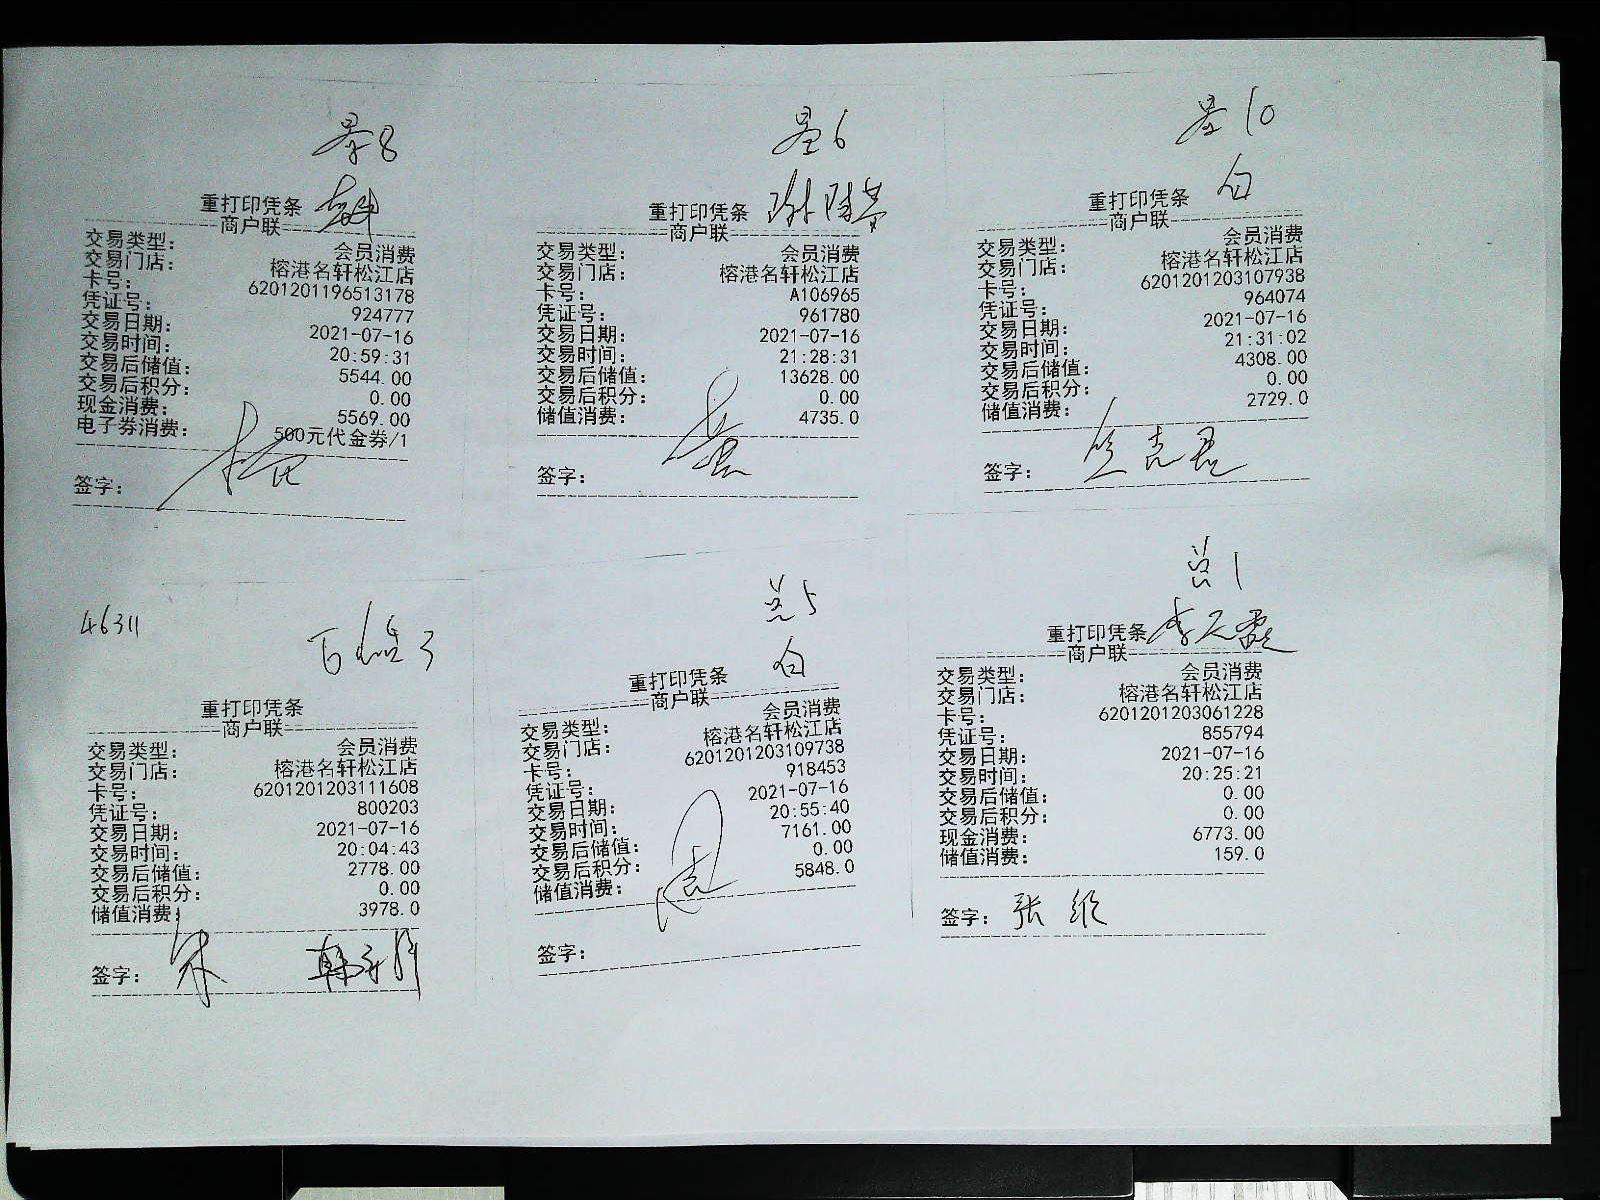 8
重打印凭条
商户联
交易类型： 会员消费
交易门店： 榕港名轩松江店
卡号： 6201201196513178
凭证号： 924777
交易日期： 2021-07-16
交易时间： 20:59:31
交易后储值： 5544.00
交易后积分： 0.00
现金消费： 5569.00
电子券消费： 500元代金券/1
签字：
6
重打印凭条
商户联
交易类型： 会员消费
交易门店： 榕港名轩松江店
卡号： A106965
凭证号： 961780
交易日期： 2021-07-16
交易时间： 21:28:31
交易后储值： 13628.00
交易后积分： 0.00
储值消费： 4735.0
签字：
10
白
重打印凭条
商户联
交易类型： 会员消费
交易门店： 榕港名轩松江店
卡号： 6201201203107938
凭证号： 964074
交易日期： 2021-07-16
交易时间： 21:31:02
交易后储值： 4308.00
交易后积分： 0.00
储值消费： 2729.0
签字：
46311
3
重打印凭条
商户联
交易类型： 会员消费
交易门店： 榕港名轩松江店
卡号： 6201201203111608
凭证号： 800203
交易日期： 2021-07-16
交易时间： 20:04:43
交易后储值： 2778.00
交易后积分： 0.00
储值消费： 3978.0
签字：
5
白
重打印凭条
商户联
交易类型： 会员消费
交易门店： 榕港名轩松江店
卡号： 6201201203109738
凭证号： 918453
交易日期： 2021-07-16
交易时间： 20:55:40
交易后储值： 7161.00
交易后积分： 0.00
储值消费： 5848.0
签字：
1
重打印凭条
商户联
交易类型： 会员消费
交易门店： 榕港名轩松江店
卡号： 6201201203061228
凭证号： 855794
交易日期： 2021-07-16
交易时间： 20:25:21
交易后储值： 0.00
交易后积分： 0.00
现金消费： 6773.00
储值消费： 159.0
签字： 张